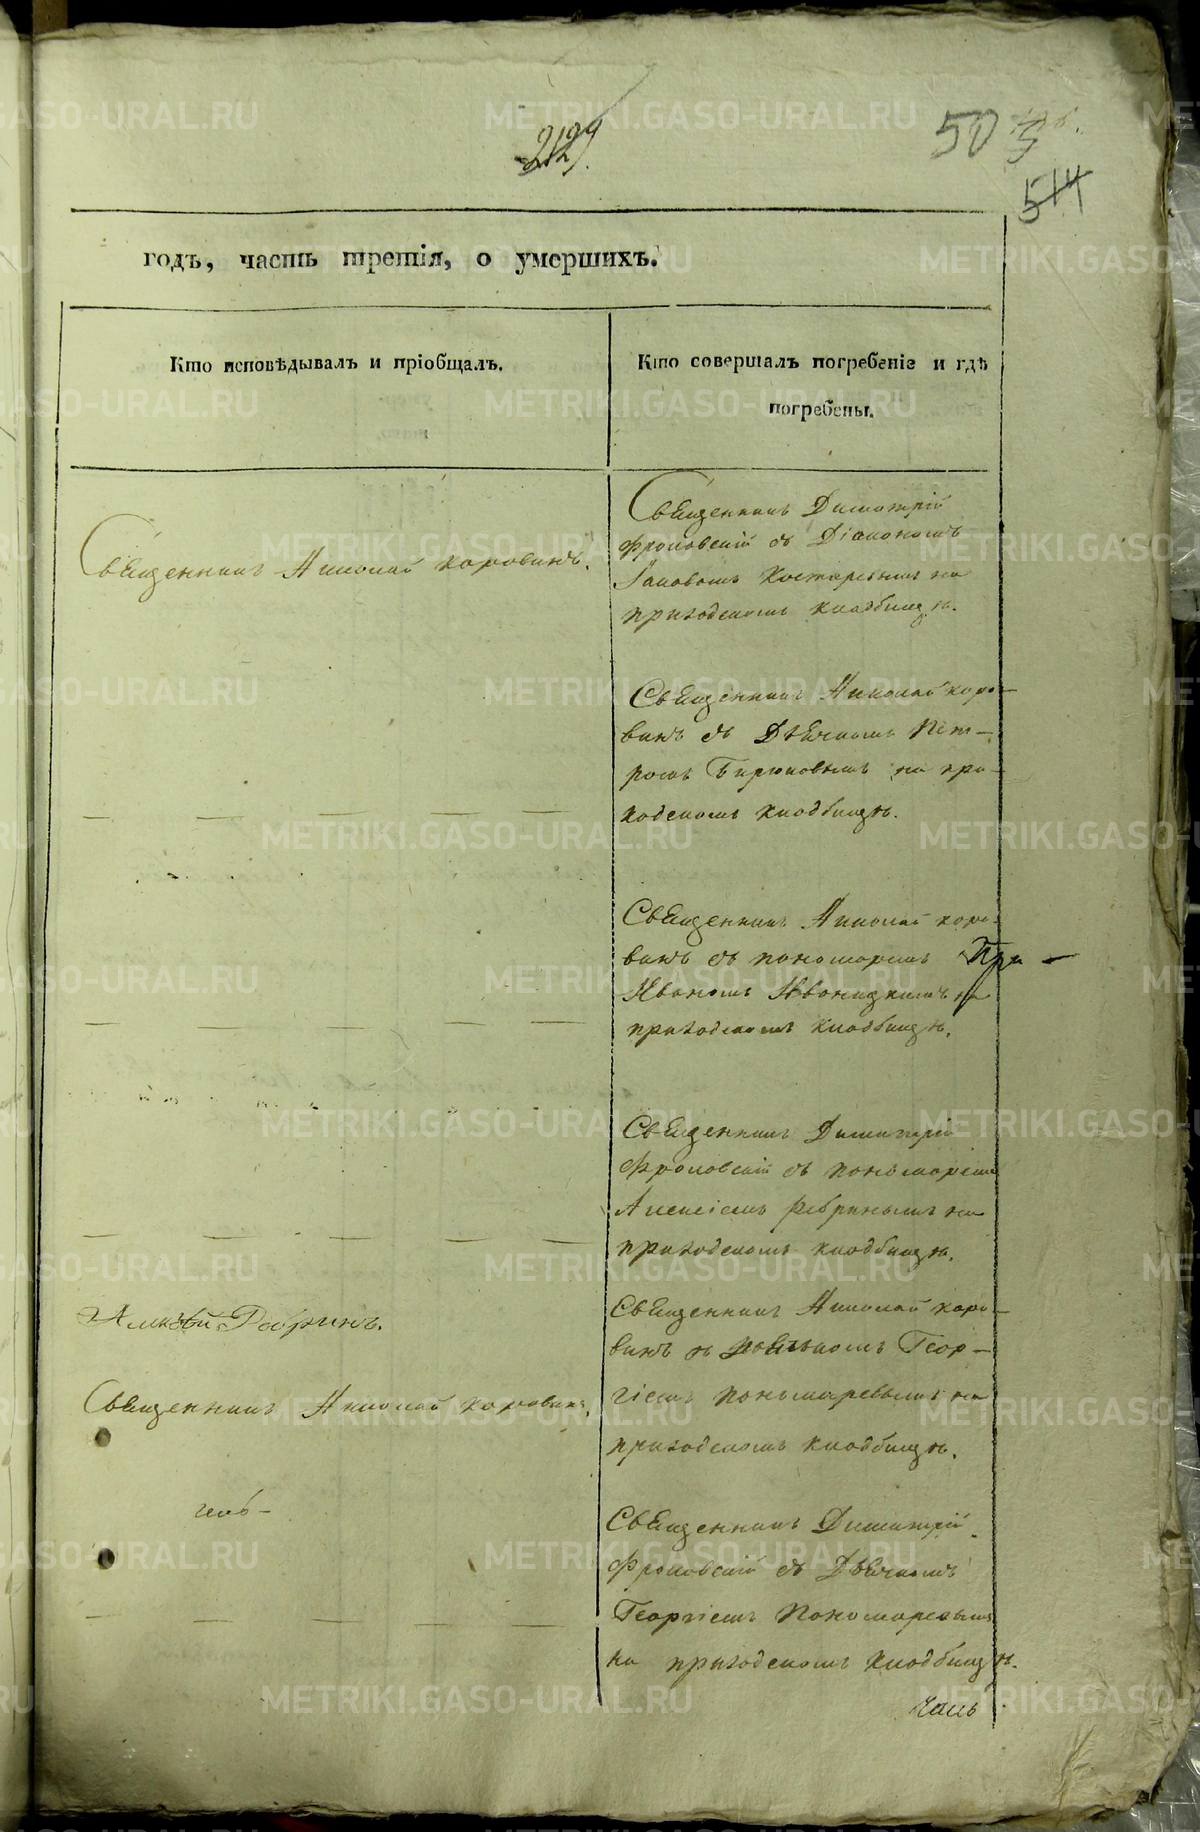 2129.
50
514
годъ, часть третія, о умершихъ.
Кто исповѣдывалъ и пріобщалъ.
Кто совершалъ погребеніе и гдѣ
погребены.
Священникъ Николай Коровинъ.
Священникъ Димитрій
Фроловскій съ Діакономъ
Іаковомъ Костаревымъ на
приходскомъ кладбищѣ.
Священникъ Николай Коро-
винъ съ Дьячкомъ Пет-
ромъ Бирюковымъ на при-
ходскомъ кладбищѣ.
Священникъ Николай Коро-
винъ съ пономаремъ
Иваномъ на
приходскомъ кладбищѣ.
Священникъ Димитрій
Фроловскій съ пономаремъ
Алексіемъ Ребринымъ на
приходскомъ кладбищѣ.
Ребринъ.
Священникъ Николай Коровинъ.
Священникъ Николай Коро-
винъ съ Дьячкомъ Геор-
гіемъ Пономаревымъ на
приходскомъ кладбищѣ.
Священникъ Димитрій
Фроловскій съ Дьячкомъ
Георгіемъ Пономаревымъ
на приходскомъ кладбищѣ.
METRIKI.GASO-URAL.RU